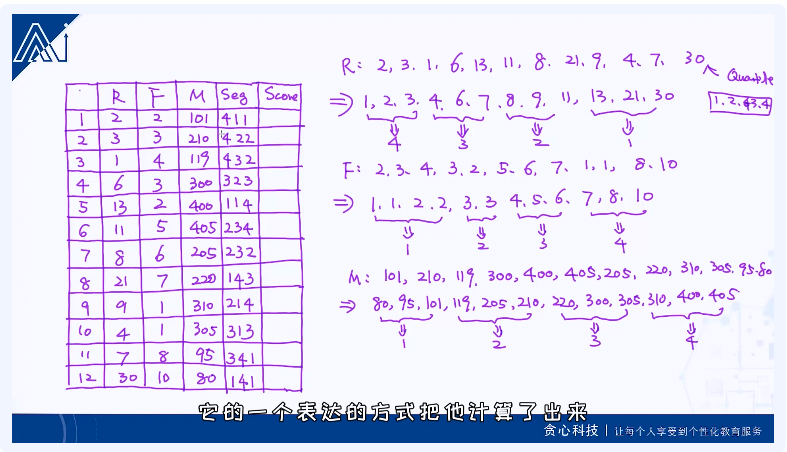 Ai
R: 2, 3. 1, 6, 13, 11, 8. 21, 9, 4. 7, 30
Quantile
1. 2. 3. 4
⇒ 1, 2, 3, 4, 6, 7, 8, 9, 11, 13, 21, 30
4 3 2 1
F: 2, 3, 4, 3, 2, 5, 6, 7, 1, 1, 8, 10
⇒ 1, 1, 2, 2, 3, 3 4, 5, 6, 7, 8, 10
1 2 3 4
M: 101, 210, 119, 300, 400, 405, 205, 220, 310, 305. 95. 80
⇒ 80, 95, 101, 119, 205, 210, 220, 300, 305, 310, 400, 405
1 2 3 4
R F M Seg Score
1 2 2 101 411
2 3 3 210 422
3 1 4 119 432
4 6 3 300 323
5 13 2 400 114
6 11 5 405 234
7 8 6 205 232
8 21 7 220 143
9 9 1 310 214
10 4 1 305 313
11 7 8 95 341
12 30 10 80 141
它的一个表达的方式把他计算了出来
贪心科技 | 让每个人享受到个性化教育服务